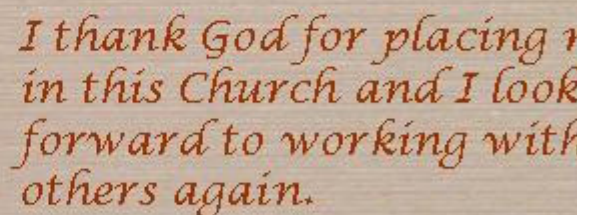 I thank God for placing
in this Church and I look
forward to working with
others again.